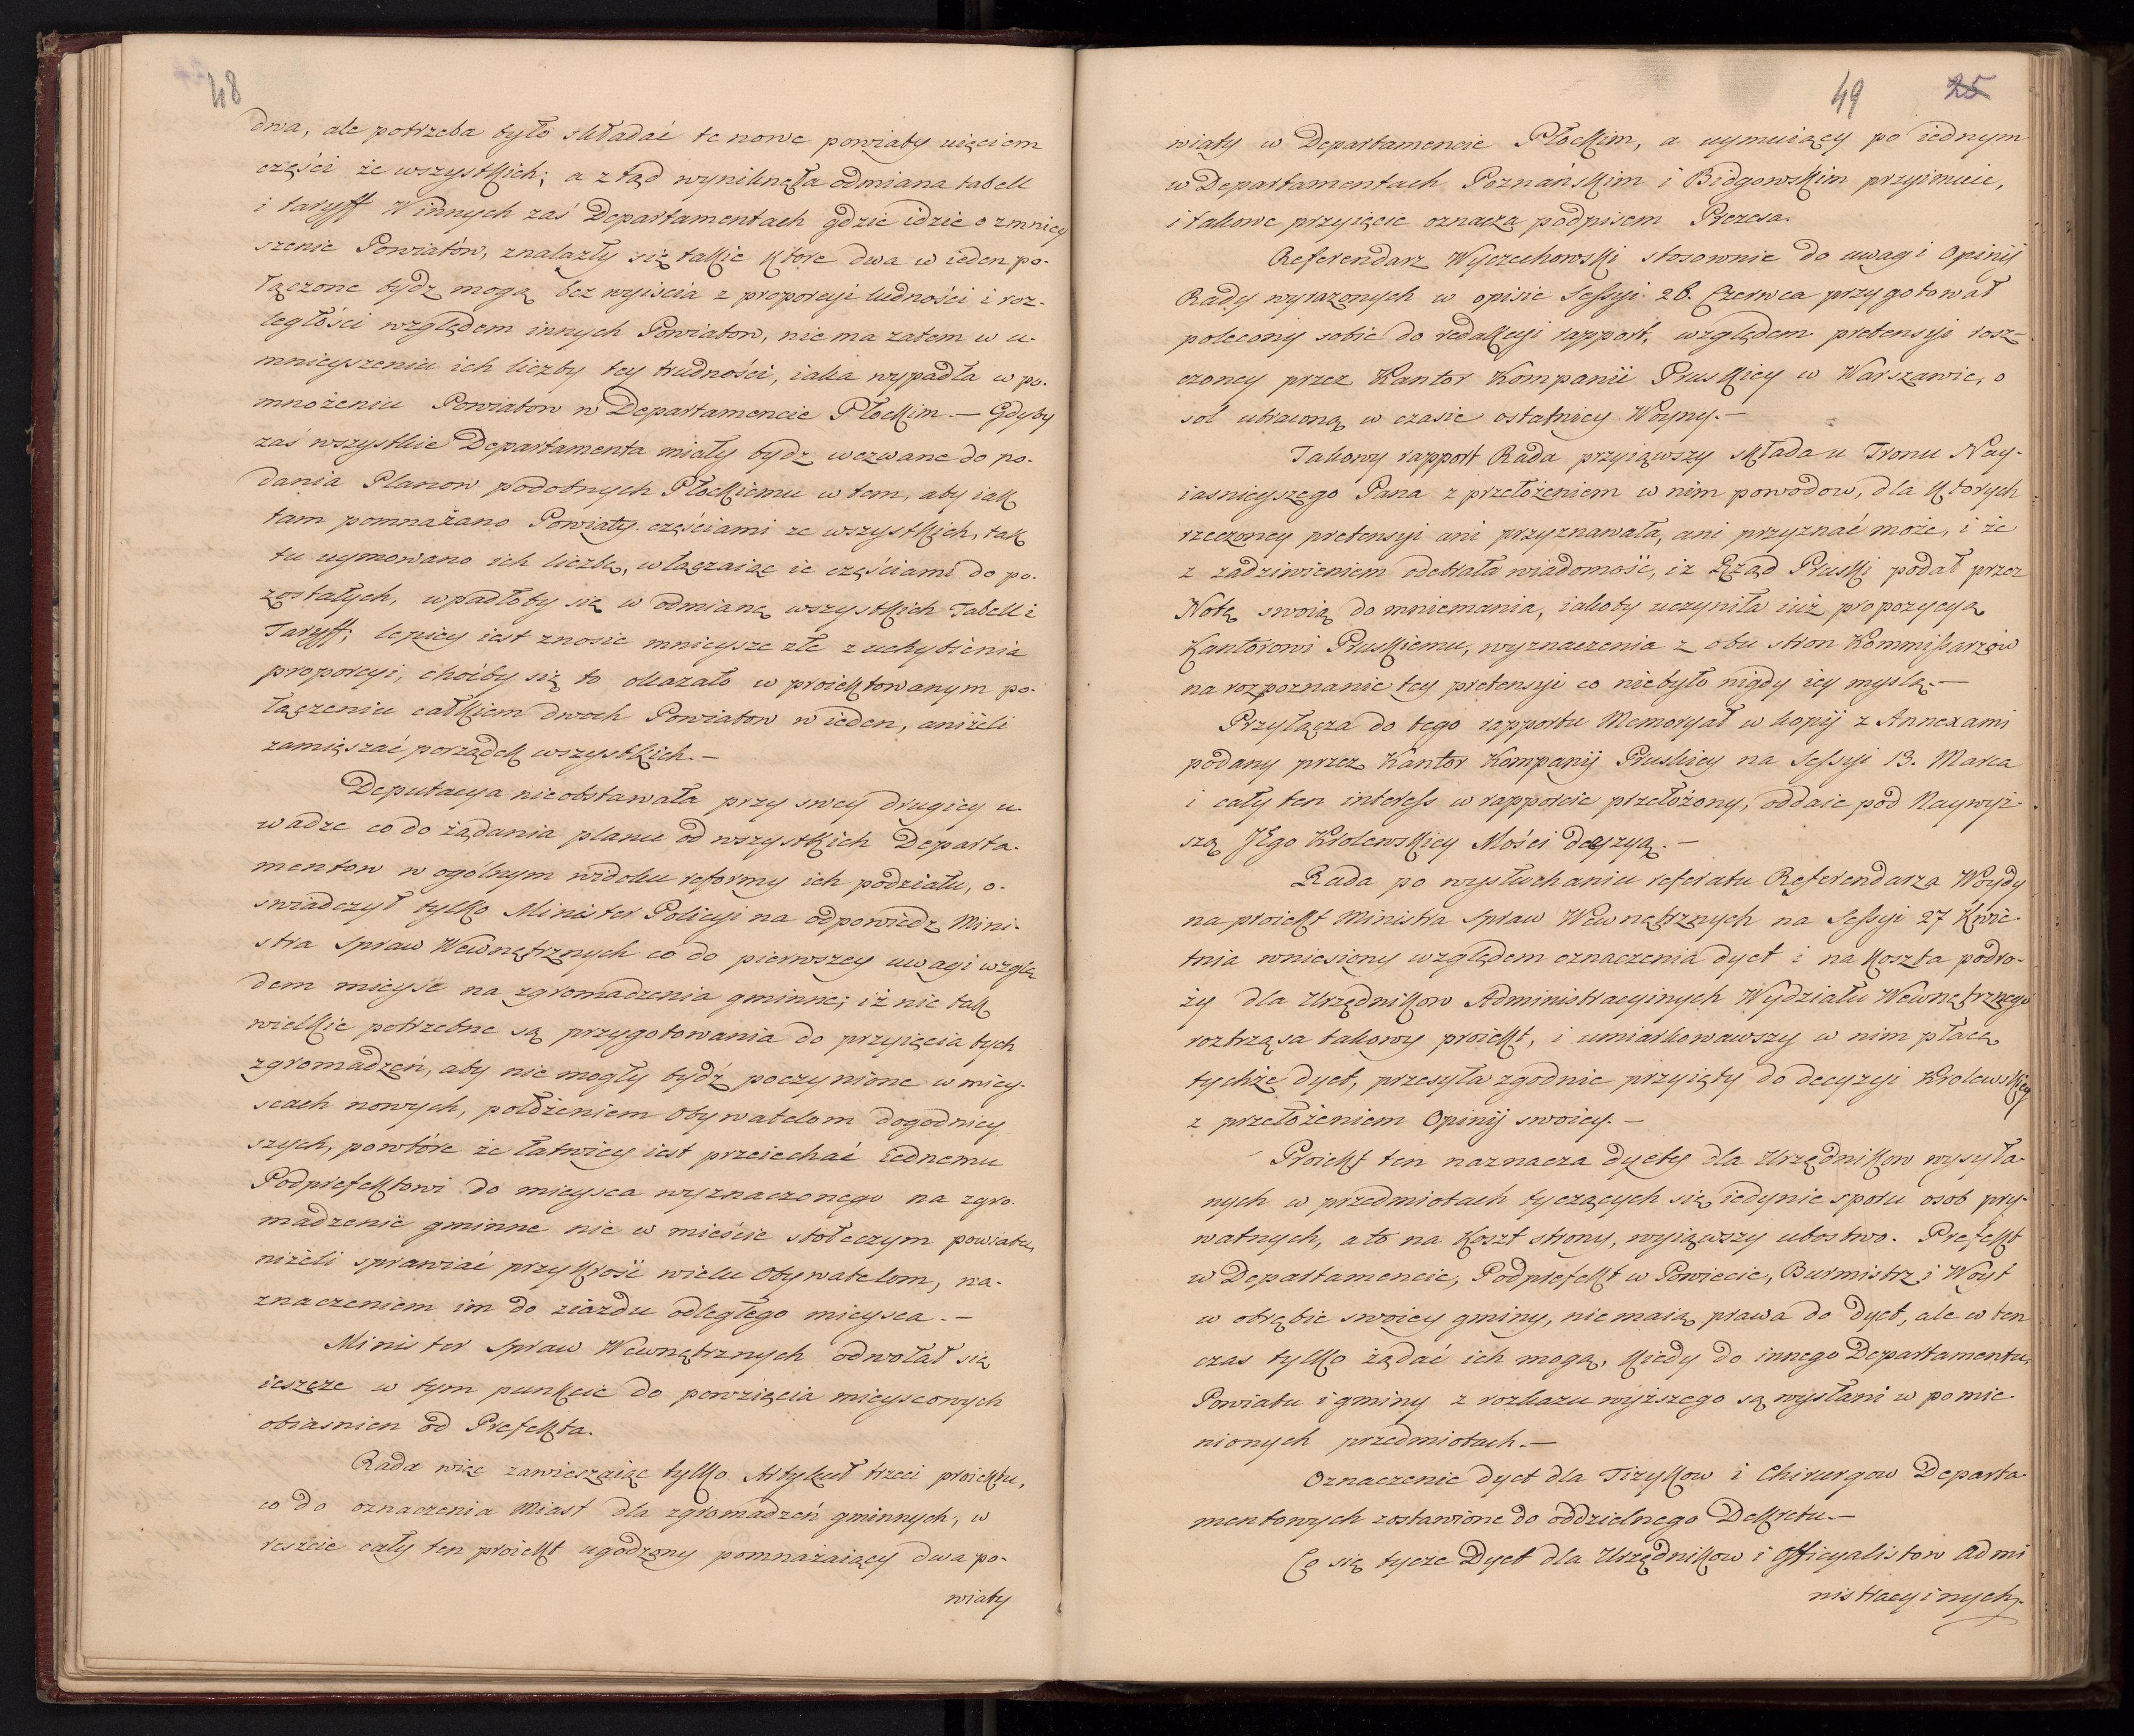 48
dwa, ale potrzeba było składać te nowe powiaty uięciem
części ze wszystkich; a ztąd wyniknęła odmiana tabell
i taryff W innych zaś Departamentach gdzie idzie o zmniey
szenie Powiatów, znalazły się takie które dwa w ieden po-
łączone bydz mogą bez wyiścia z proporcyi ludności i roz-
ległości względem innych Powiatow, nie ma zatem w u-
mnieyszeniu ich liczby tey trudności, iaka wypadła w po-
mnożeniu Powiatow w Departamencie Płockim. — Gdyby
zaś wszystkie Departamenta miały bydz wezwane do po-
dania Planow podobnych Płockiemu w tem, aby iak
tam pomnażano Powiaty częściami ze wszystkich, tak
tu uymowano ich liczbę, włączaiąc ie częściami do po-
zostałych, wpadłoby się w odmianę wszystkich Tabell i
Taryff; lepiey iest znosić mnieysze złe z uchybienia
proporcyi, choćby się to okazało w proiektowanym po-
łączeniu całkiem dwoch Powiatow w ieden, aniżeli
zamięszać porządek wszystkich. —
Deputacya nieobstawała przy swey drugiey u-
wadze co do żądania planu od wszystkich Departa-
mentow w ogólnym widoku reformy ich podziału, o-
swiadczył tylko Minister Policyi na odpowiedz Mini-
stra Spraw Wewnętrznych co do pierwszey uwagi wzglę
dem mieysc na zgromadzenia gminne; iż nie tak
wielkie potrzebne są przygotowania do przyięcia tych
zgromadzeń, aby nie mogły bydź poczynione w miey-
scach nowych, położeniem Obywatelom dogodniey
szych, powtóre że łatwiey iest przeiechać iednemu
Podprefektowi do mieysca wyznaczonego na zgro-
madzenie gminne nie w mieście stołeczym powiatu,
niżeli sprawiać przykrość wielu Obywatelom, na-
znaczeniem im do ziazdu odległego mieysca. —
Minister Spraw Wewnętrznych odwołał się
ieszcze w tym punkcie do powzięcia mieyscowych
obiasnien od Prefekta.
Rada więc zawieszaiąc tylko Artykuł trzeci proiektu,
co do oznaczenia Miast dla zgromadzeń gminnych, w
reszcie cały ten proiekt ugodzony pomnażaiący dwa po-
wiaty
49 25
wiaty w Departamencie Płockim, a uymuiący po iednym
w Departamentach Poznańskim i Bidgowskim przyimuie,
i takowe przyięcie oznacza podpisem Prezesa.
Referendarz Wyczechowski stosownie do uwag i Opinij
Rady wyrazonych w opisie Sessyi 26. Czerwca przygotował
polecony sobie do redakcyi rapport, względem pretensyi rosz-
czoney przez Kantor Kompanii Pruskiey w Warszawie, o
sol utraconą w czasie ostatniey Woyny. —
Takowy rapport Rada przyiąwszy składa u Tronu Nay-
iasnieyszego Pana z przełożeniem w nim powodow, dla ktorych
rzeczoney pretensyi ani przyznawała, ani przyznać może, i że
z zadziwieniem odebrała wiadomość, iz Rząd Pruski podał przez
Notę swoią do mniemania, iakoby uczyniła iuż propozycyą
Kantorowi Pruskiemu, wyznaczenia z obu stron Kommissarzów
na rozpoznanie tey pretensyi co niebyło nigdy iey myslą. —
Przyłącza do tego rapportu Memoryał w kopij z Annexami
podany przez Kantor Kompanij Pruskiey na Sessyi 13. Marca
i cały ten interess w rapporcie przełożony, oddaie pod Naywyż-
szą JEgo Krolewskiey Mości decyzyą. —
Rada po wysłuchaniu referatu Referendarza Woydy
na proiekt Ministra Spraw Wewnętrznych na Sessyi 27 Kwie-
tnia wniesiony względem oznaczenia dyet i na koszta podro-
ży dla Urzędnikow Administracyinych Wydziału Wewnętrznego
roztrząsa takowy proiekt, i umiarkowawszy w nim płacę
tychże dyet, przesyła zgodnie przyięty do decyzyi Krolewskiey
z przełożeniem Opinij swoiey. —
Proiekt ten naznacza dyety dla Urzędnikow wysyła-
nych w przedmiotach tyczących się iedynie sporu osob pry-
watnych, a to na koszt strony, wyiąwszy ubostwo. Prefekt
w Departamencie, Podprefekt w Powiecie, Burmistrz i Woyt
w obrębie swoiey gminy, nie maią prawa do dyet, ale w ten
czas tylko żądać ich mogą, kiedy do innego Departamentu,
Powiatu i gminy z rozkazu wyższego są wysłani w pomie
nionych przedmiotach. —
Oznaczenie dyet dla Fizykow i Chirurgow Departa-
mentowych zostawione do oddzielnego Dekretu. —
Co się tycze Dyet dla Urzędnikow i Officyalistow Admi
nistracyinych.